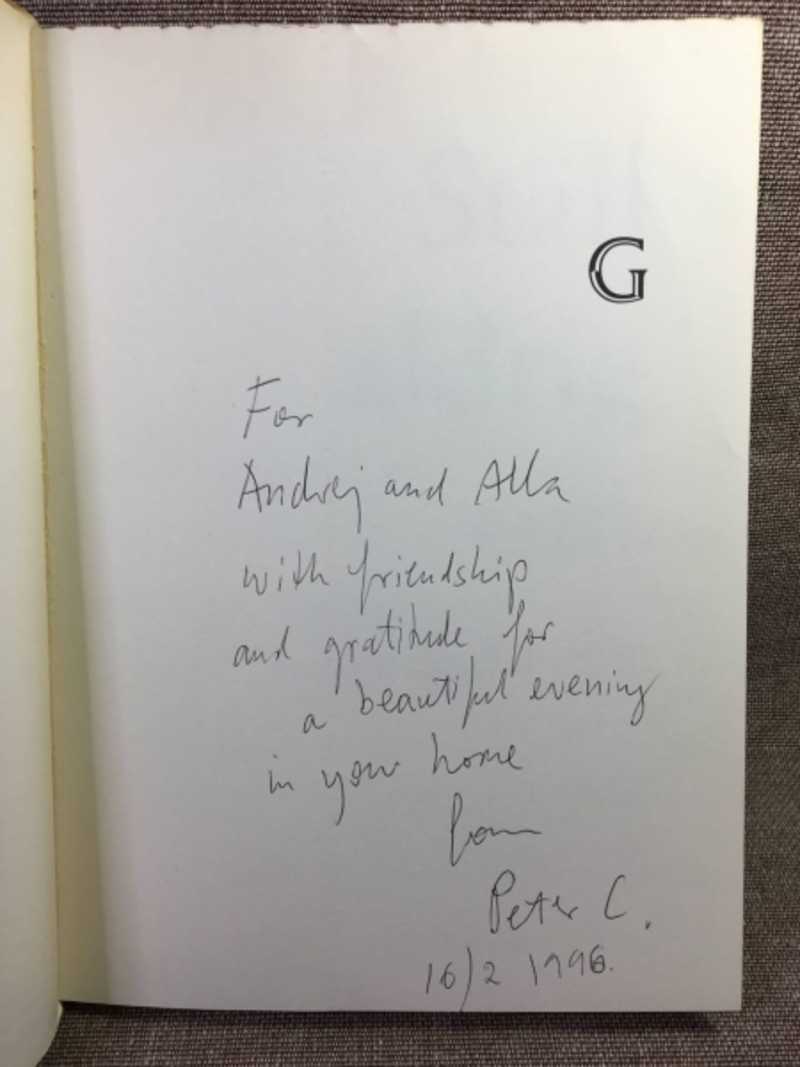 G
For
Andrej and Alla
with friendship
and gratitude for
a beautiful evening
in your home
from
Peter C.
16/2 1996.